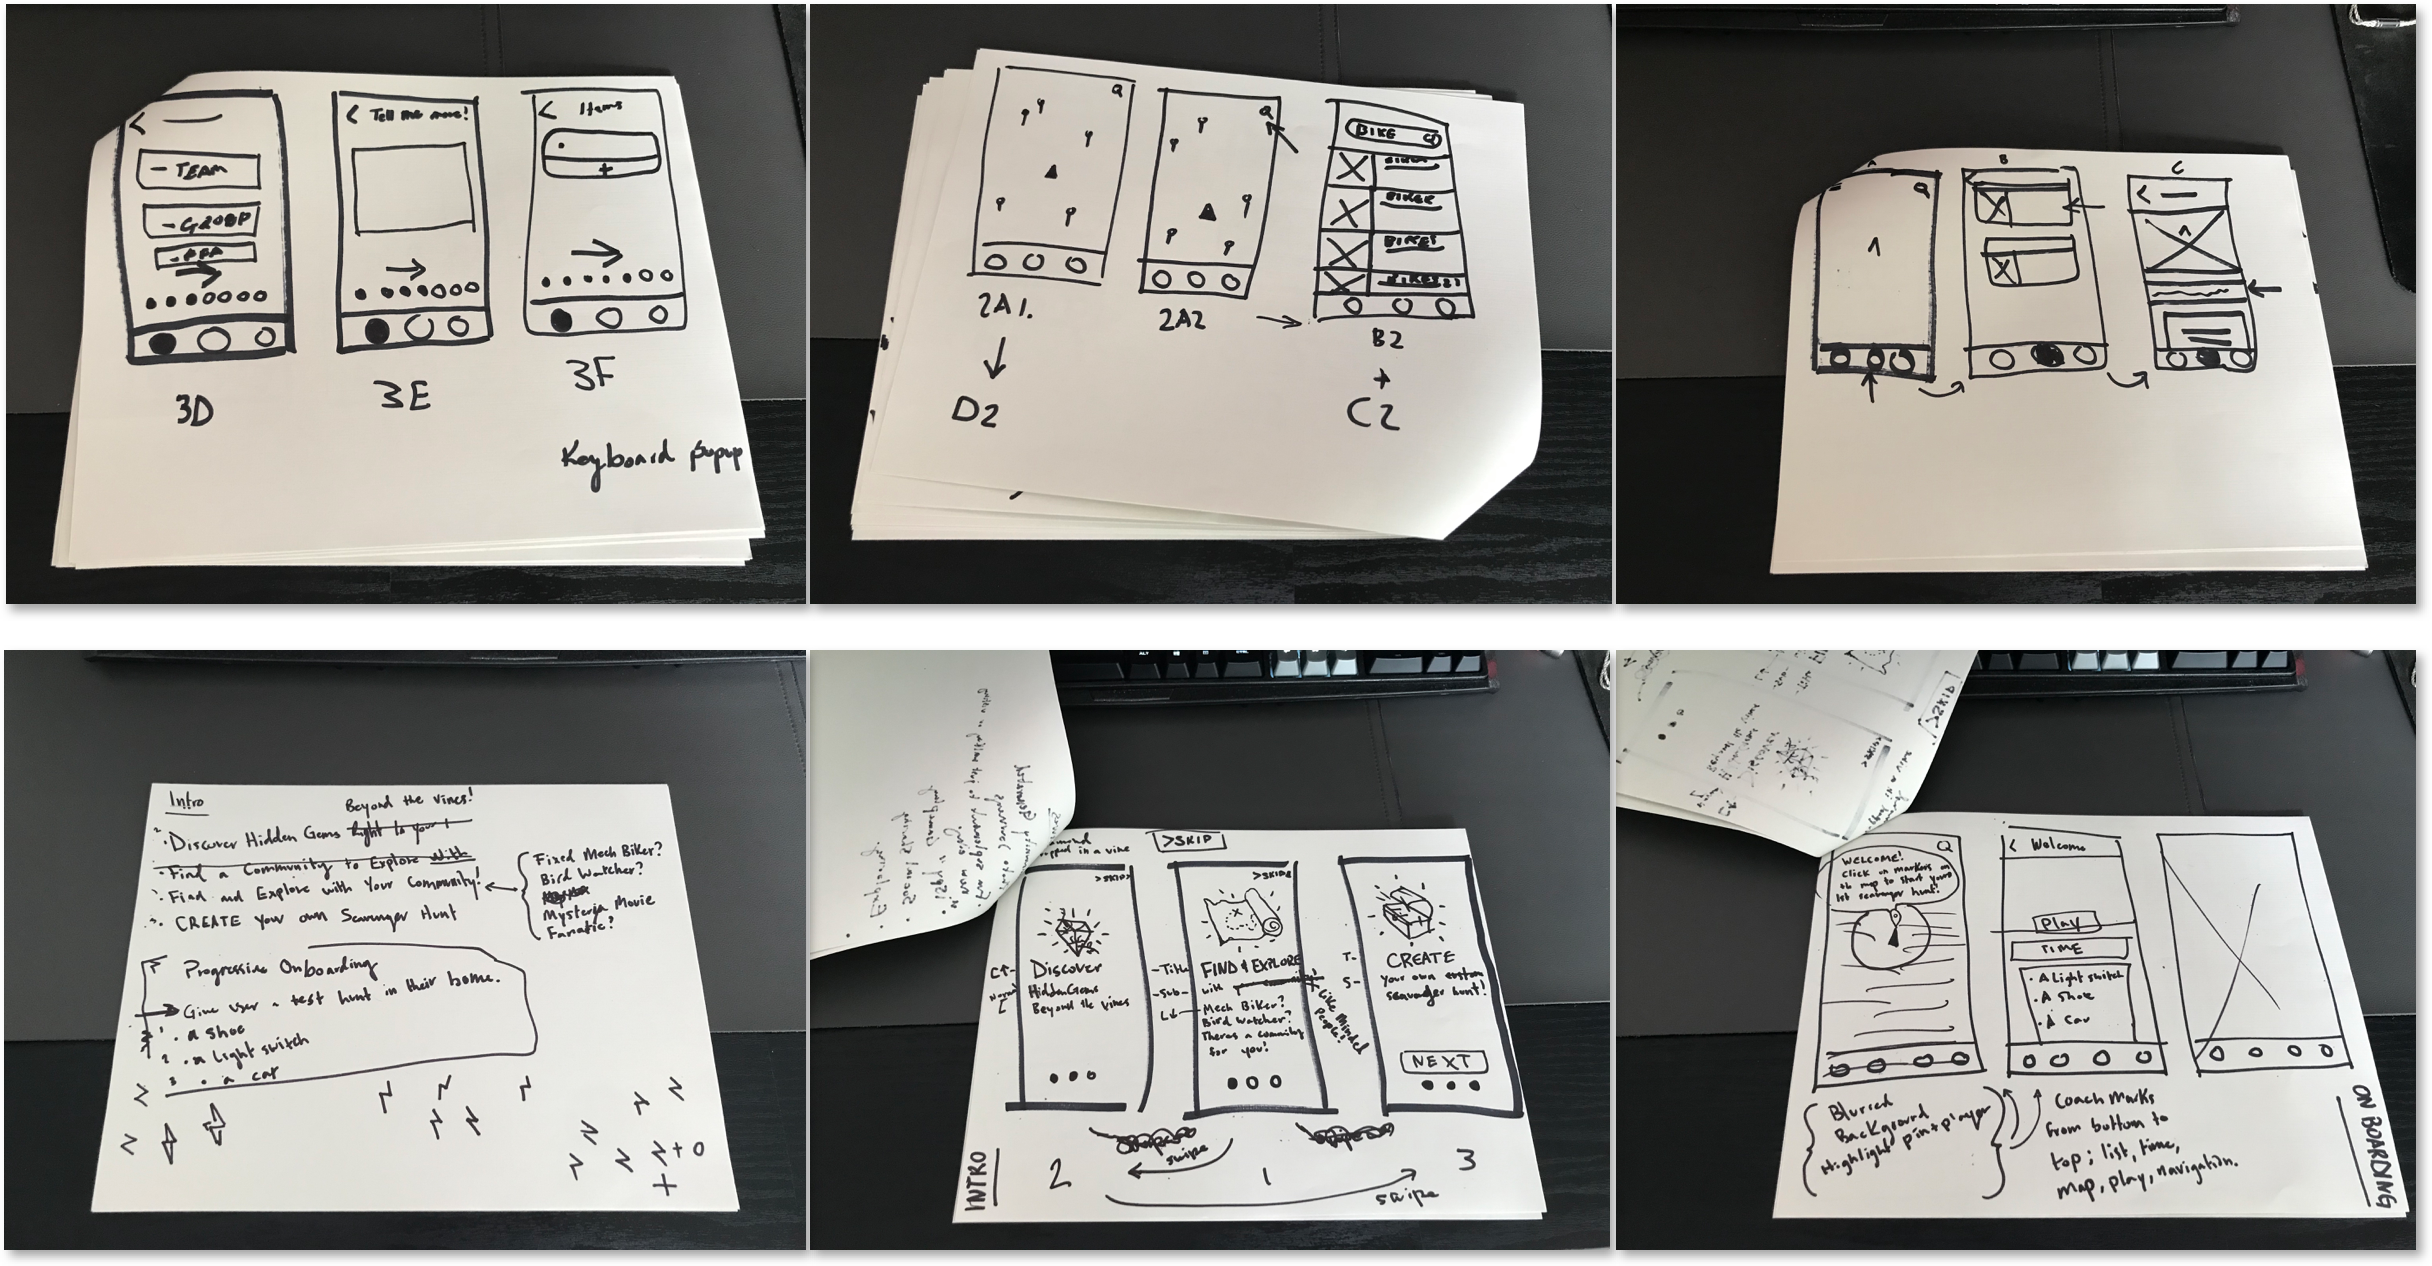 Tell me more!
Items
- TEAM
3D
3E
3F
Keyboard popup
2A1.
D2
2A2
BIKE
B2
+
C2
B
C
Intro
Beyond the vines!
Discover Hidden Gems Right to your
Find a Community to Explore With
Find and Explore with Your Community!
CREATE Your own Scavenger Hunt
Fixed Mech Biker?
Bird Watcher?
Mysteria Movie
Fanatic?
Progressive Onboarding
Give user a test hunt in their home.
1 . a shoe
2 . a light switch
3 . a car
>SKIP
>SKIP>
Discover
Hidden Gems
Beyond the vines
-Title
-Sub-
FIND & EXPLORE
with
Like Minded
People!
Mech Biker?
Bird Watcher?
Theres a commity
for you!
T-
S-
CREATE
your own custom
scavenger hunt!
NEXT
swipe
swipe
2
1
3
INTRO
WELCOME!
Click on markers on
map to start your
1st scavenger hunt!
< Welcome
Play
TIME
. A Light switch
. A Shoe
. A Car
Blurred
Background
Highlight pin + player
Coach marks
from bottom to
top; list, time,
map, play, navigation.
ON BOARDING